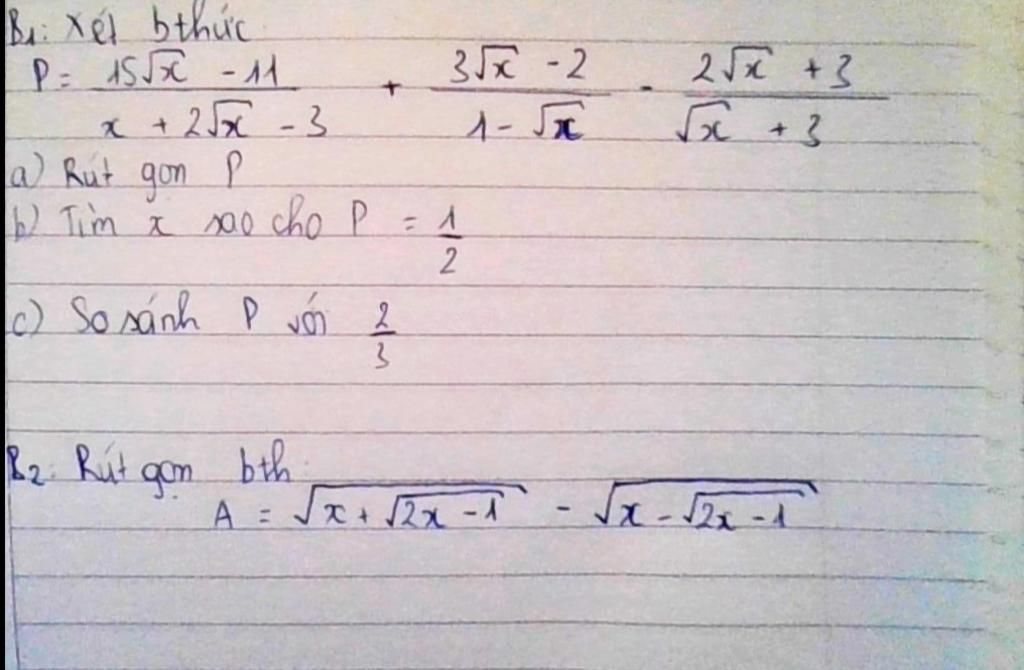 B1: Xét bthức
P = \frac{15\sqrt{x} - 11}{x + 2\sqrt{x} - 3} + \frac{3\sqrt{x} - 2}{1 - \sqrt{x}} - \frac{2\sqrt{x} + 3}{\sqrt{x} + 3}
a) Rút gọn P
b) Tìm x sao cho P = \frac{1}{2}
c) So sánh P với \frac{2}{3}
B2: Rút gọn bth:
A = \sqrt{x + \sqrt{2x - 1}} - \sqrt{x - \sqrt{2x - 1}}